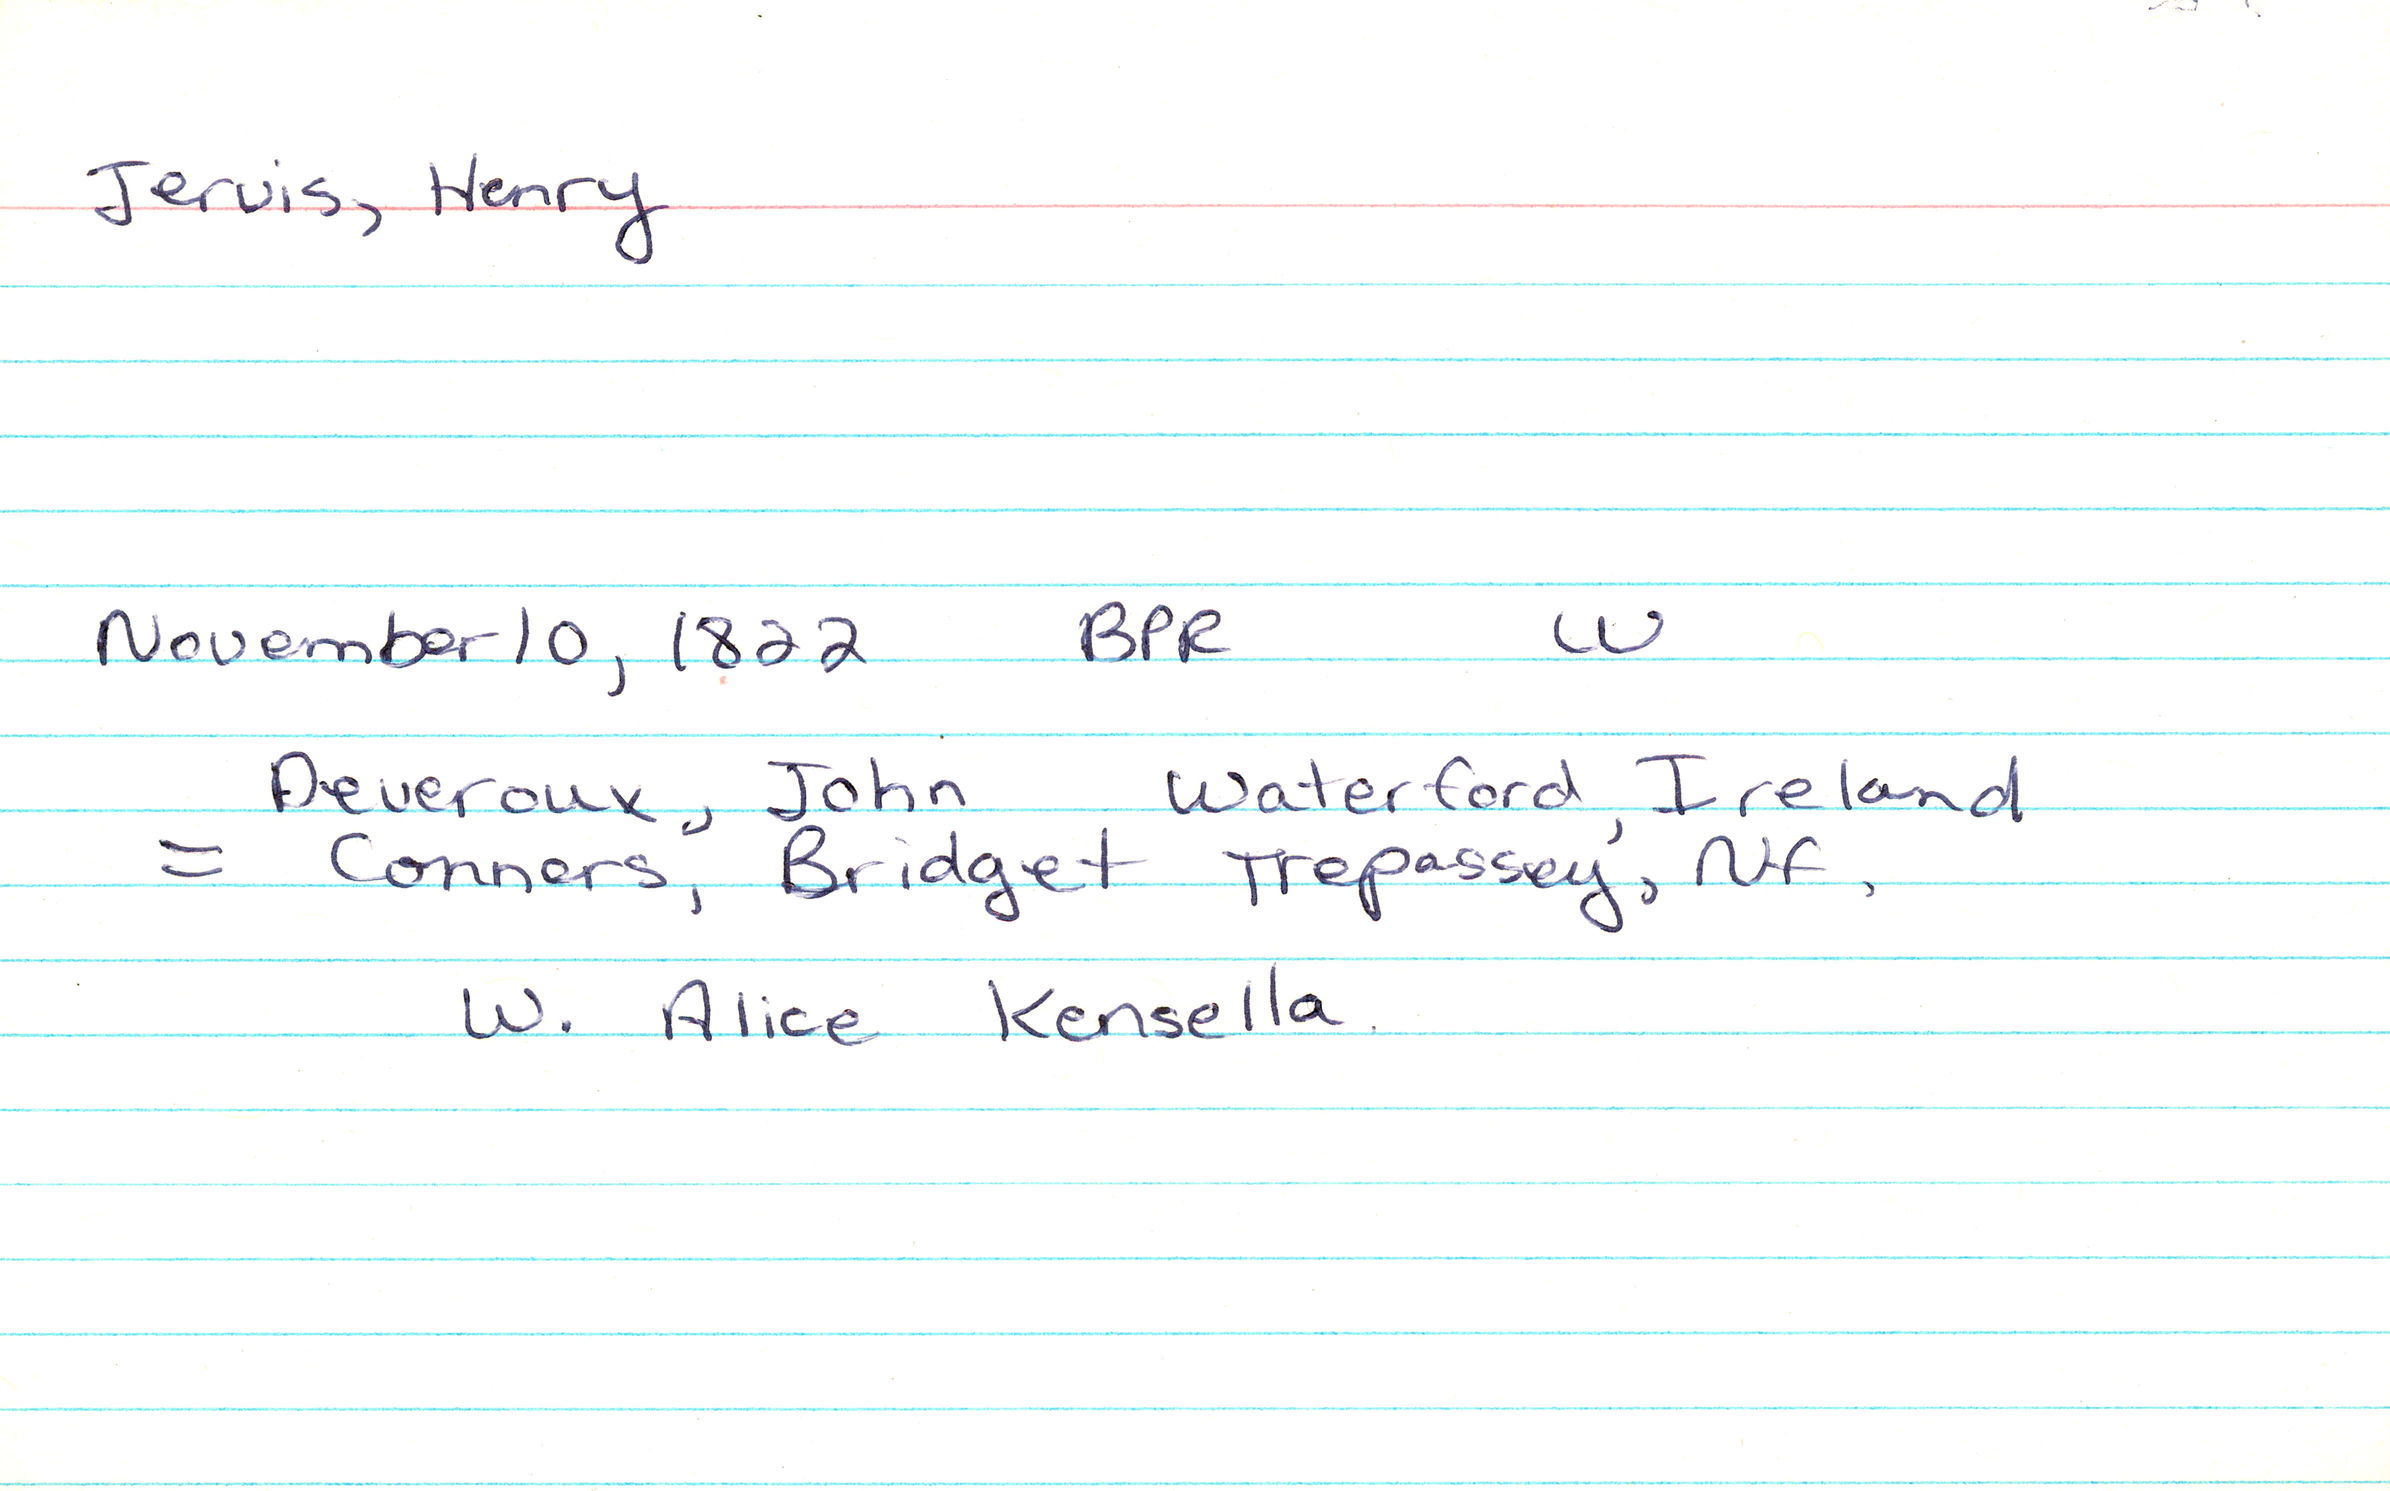 Jervis, Henry
November 10, 1822 BPR W
Deveroux, John Waterford, Ireland
= Conners, Bridget Trepassey, Nf.
W. Alice Kensella.